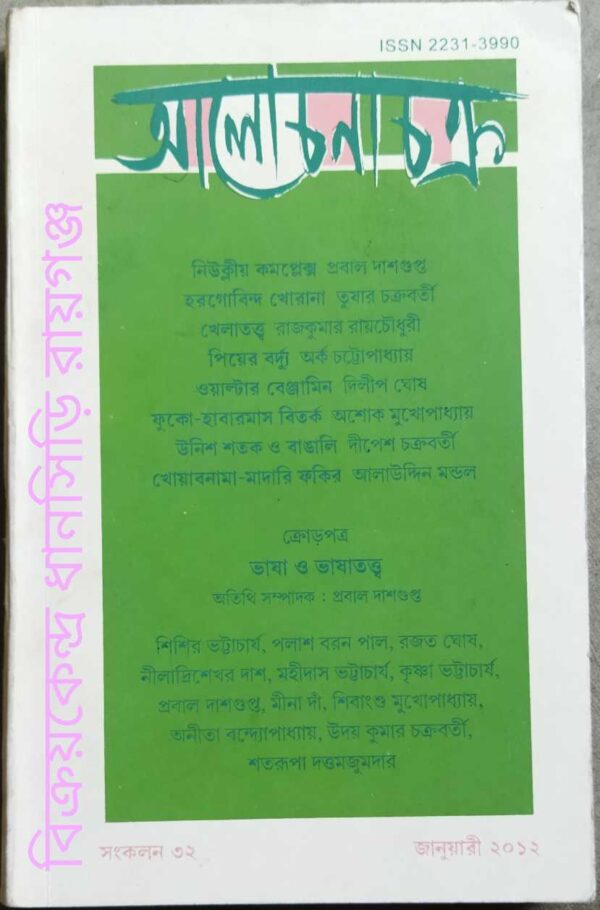 ISSN 2231-3990
আলোচনা চক্র
নিউক্লীয় কমপ্লেক্স প্রবাল দাশগুপ্ত
হরগোবিন্দ খোরানা তুষার চক্রবর্তী
খেলাতত্ত্ব রাজকুমার রায়চৌধুরী
পিয়ের বর্দ্যু অর্ক চট্টোপাধ্যায়
ওয়াল্টার বেঞ্জামিন দিলীপ ঘোষ
ফুকো-হাবারমাস বিতর্ক অশোক মুখোপাধ্যায়
উনিশ শতক ও বাঙালি দীপেশ চক্রবর্তী
খোয়াবনামা-মাদারি ফকির আলাউদ্দিন মন্ডল
ক্রোড়পত্র
ভাষা ও ভাষাতত্ত্ব
অতিথি সম্পাদক : প্রবাল দাশগুপ্ত
শিশির ভট্টাচার্য, পলাশ বরন পাল, রজত ঘোষ,
নীলাদ্রিশেখর দাশ, মহীদাস ভট্টাচার্য, কৃষ্ণা ভট্টাচার্য,
প্রবাল দাশগুপ্ত, মীনা দাঁ, শিবাংশু মুখোপাধ্যায়,
অনীতা বন্দ্যোপাধ্যায়, উদয় কুমার চক্রবর্তী,
শতরূপা দত্তমজুমদার
সংকলন ৩২
জানুয়ারী ২০১২
বিক্রয়কেন্দ্র ধানসিড়ি রায়গঞ্জ